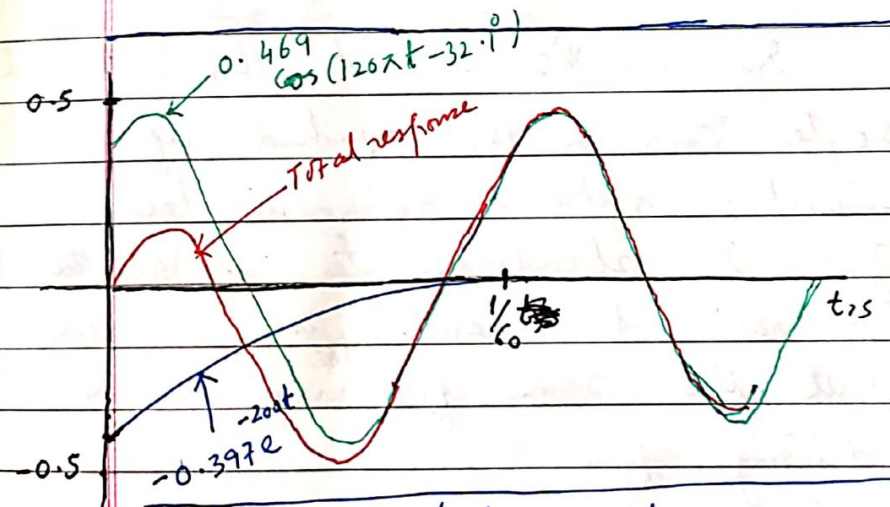 0.469
Cos(120πt-32.1°)
0.5
Total response
1/60
t,s
-0.397e^-200t
-0.5